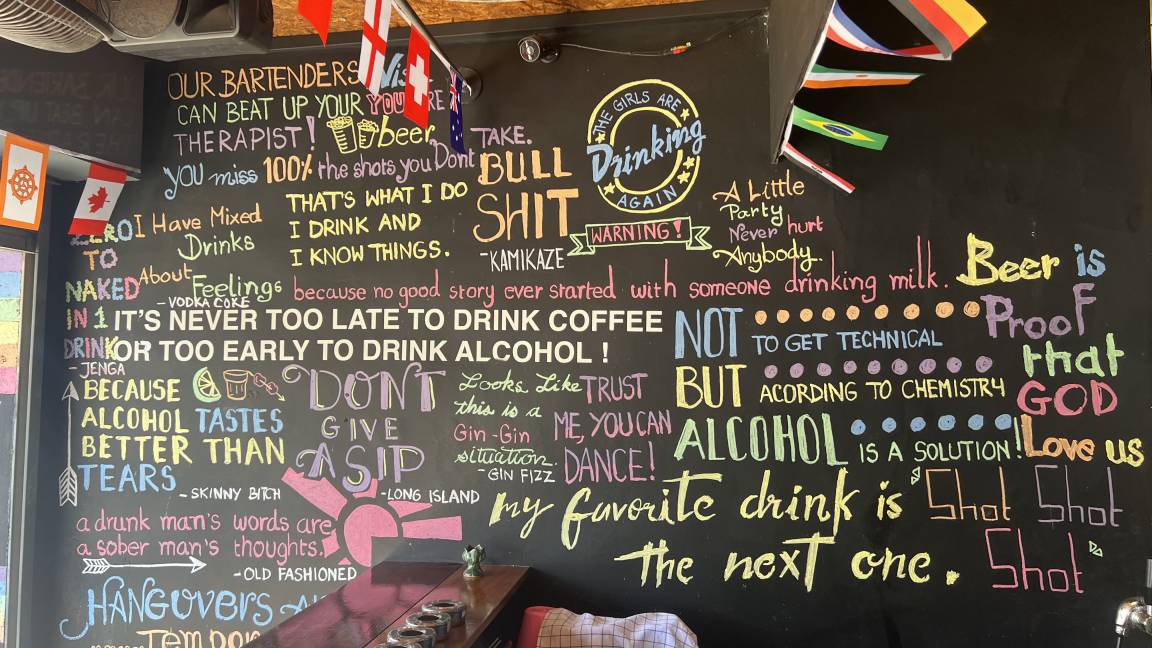 OUR BARTENDERS
CAN BEAT UP YOUR
THERAPIST!
YOU
beer.
YOU miss 100% the shots you Dont
TAKE.
BULL
SHIT
-KAMIKAZE
THE GIRLS ARE
Drinking
AGAIN
WARNING!
A Little
Party
Never hurt
Anybody..
THAT'S WHAT I DO
I DRINK AND
I KNOW THINGS.
I Have Mixed
Drinks
About Feelings
ZERO
TO
NAKED
IN 1
DRINK
- JENGA
- VODKA COKE
because no good story ever started with someone drinking milk.
IT'S NEVER TOO LATE TO DRINK COFFEE
OR TOO EARLY TO DRINK ALCOHOL !
Beer is
Proof
that
GOD
Love us
NOT TO GET TECHNICAL
BUT ACORDING TO CHEMISTRY
ALCOHOL IS A SOLUTION!
BECAUSE
ALCOHOL TASTES
BETTER THAN
TEARS
- SKINNY BITCH
DON'T
GIVE
A SIP
-LONG ISLAND
Looks Like
this is a
Gin-Gin
situation.
- GIN FIZZ
TRUST
ME, YOU CAN
DANCE!
my favorite drink is
the next one.
"Shot Shot
Shot"
a drunk man's words are
a sober man's thoughts.
-OLD FASHIONED
HANGOVERS